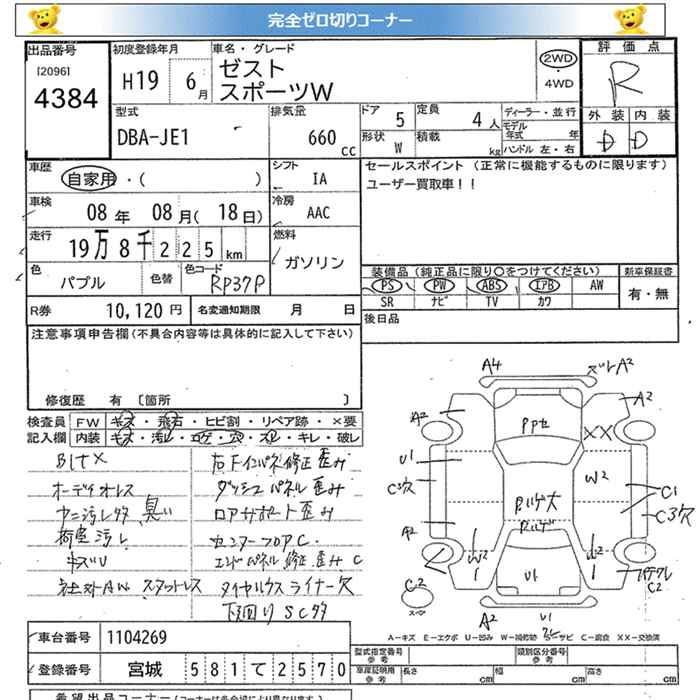 完全ゼロ切りコーナー
出品番号
[2096]
4384
初度登録年月
H19 6月
車名・グレード
ゼスト
スポーツW
2WD
4WD
評価点
R
外装 内装
D D
型式
DBA-JE1
排気量
660 cc
ドア 5
形状 W
定員 4人
積載 kg
ディーラー・並行
モデル年式 年
ハンドル 左・右
車歴
自家用・( )
シフト
IA
セールスポイント (正常に機能するものに限ります)
ユーザー買取車!!
車検
08年 08月(18日)
冷房
AAC
走行
19万8千225km
燃料
ガソリン
色
パプル
色替
色コード
RP37P
装備品(純正品に限り○をつけてください)
新車保証書
PS PW ABS エアB AW
SR ナビ TV カワ
有・無
R券
10,120円
名変通知期限 月 日
後日品
注意事項申告欄(不具合内容等は具体的に記入して下さい)
修復歴 有 [箇所 ]
検査員記入欄
FW キズ・飛石・ヒビ割・リペア跡・×要
内装 キズ・汚レ・コゲ・穴・スレ・キレ・破レ
BLTX
オーディオレス
ヤニ汚レ多 臭い
荷室汚レ
キズU
社外AW スタットレス
右Fインパネ修正歪み
ダッシュパネル歪み
ロアサポート歪み
センターフロアC
エンドパネル修正歪みC
タイヤハウスライナー欠
下回りSC多
A4
ズレA2
A2
A2
XX
Ppセ
U1
C3欠
W2
C1
C3欠
Rルーゲ大
Rルーゲ
A2
W2
1
W2
1
U1
C2
スペア
C2
A2
U1
A-キズ E-エクボ U-凹み W-補修跡 S-サビ C-腐食 XX-交換済
車台番号
1104269
登録番号
宮城 581 て 2570
型式指定番号
参考
類別区分番号
参考
車庫証明用
参考
長さ cm
幅 cm
高さ cm
希望出品コーナー